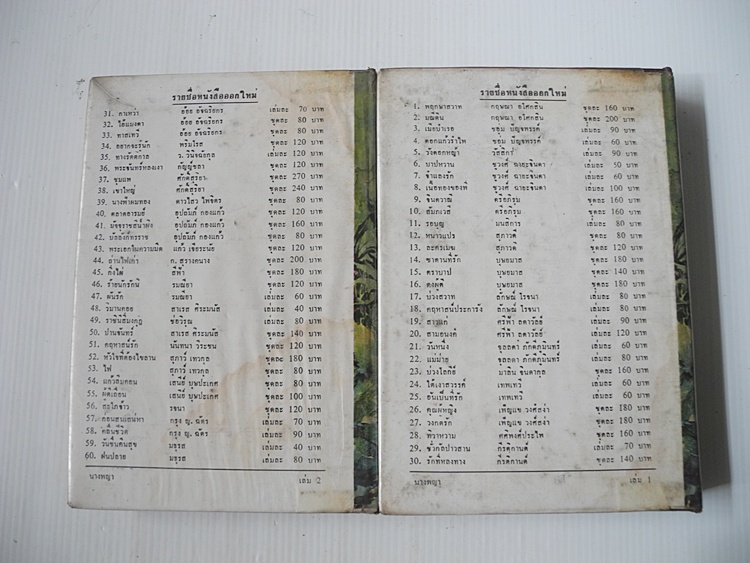 รายชื่อหนังสือออกใหม่
31. คาเหว่า อ้อย อัจฉริยกร เล่มละ 70 บาท
32. ไอ้แมงดา อ้อย อัจฉริยกร ชุดละ 80 บาท
33. ทาสเทวี อ้อย อัจฉริยกร ชุดละ 80 บาท
34. อยากจะรู้นัก พรมโรส ชุดละ 120 บาท
35. ทางรัตติกาล ว. วินิจฉัยกุล ชุดละ 120 บาท
36. พระจันทร์หลงเงา กัญญ์ชลา ชุดละ 120 บาท
37. ขุมแพ ศักดิ์สุริยา ชุดละ 270 บาท
38. เขาใหญ่ ศักดิ์สุริยา ชุดละ 240 บาท
39. นางฟ้าผมทอง ดาวไสว ไพจิตร ชุดละ 80 บาท
40. ตลาดอารมย์ อุปถัมภ์ กองแก้ว ชุดละ 120 บาท
41. มัจจุราชสีน้ำผึ้ง อุปถัมภ์ กองแก้ว ชุดละ 160 บาท
42. บัลลังก์ทรราช อุปถัมภ์ กองแก้ว ชุดละ 120 บาท
43. พระเอกในความมืด แก้ว เจียระนัย ชุดละ 120 บาท
44. ถ่านไฟเก่า ก. สุรางคนางค์ ชุดละ 200 บาท
45. กิ่งไผ่ สีฟ้า ชุดละ 180 บาท
46. ร้ายนักรักนี้ รมณียา ชุดละ 120 บาท
47. ตันรัก รมณียา เล่มละ 60 บาท
48. วิมานคอย สาเรศ ศิระมนัส เล่มละ 80 บาท
49. ราชินีมงกุฎ ช่อวรุณ ชุดละ 80 บาท
50. ม่านจันทร์ สาเรศ ศิระมนัส ชุดละ 140 บาท
51. คฤหาสน์รัก นันทนา วีระชน ชุดละ 120 บาท
52. หัวใจที่ต้องไขลาน สุภาว์ เทวกุล ชุดละ 180 บาท
53. ไฟ สุภาว์ เทวกุล ชุดละ 80 บาท
54. แก้วลืมคอน เสนีย์ บุษปะเกศ ชุดละ 80 บาท
55. ผีดิเรือน เสนีย์ บุษปะเกศ ชุดละ 100 บาท
56. สะใภ้จ้าว รจนา ชุดละ 120 บาท
57. ก่อนสิ้นเสน่หา กรุง ญ. ฉัตร เล่มละ 70 บาท
58. คลื่นชีวิต กรุง ญ. ฉัตร เล่มละ 90 บาท
59. วันชื่นคืนสุข มธุรส เล่มละ 40 บาท
60. ฝนปลาย มธุรส เล่มละ 80 บาท
นางพญา เล่ม 2
รายชื่อหนังสือออกใหม่
1. พฤกษาสวาท กฤษณา อโศกสิน ชุดละ 160 บาท
2. ฆมตีน กฤษณา อโศกสิน ชุดละ 200 บาท
3. เมียบำเรอ ชอุ่ม ปัญจพรรค์ เล่มละ 90 บาท
4. ดอกแก้วรำไพ ชอุ่ม ปัญจพรรค์ เล่มละ 60 บาท
5. วังดอกหญ้า วัสสิการ์ เล่มละ 90 บาท
6. บาปหวาน ชูวงศ์ ฉายะจินดา เล่มละ 50 บาท
7. จำเลยรัก ชูวงศ์ ฉายะจินดา เล่มละ 60 บาท
8. เนื้อทองของพี่ ชูวงศ์ ฉายะจินดา ชุดละ 100 บาท
9. จินตวาณี ตรีอภิรุม ชุดละ 160 บาท
10. สัมภเวสี ตรีอภิรุม ชุดละ 160 บาท
11. รอบุญ มนัสการ เล่มละ 80 บาท
12. หน่าวแปร สุภาวดี ชุดละ 80 บาท
13. ละครเมฆ สุภาวดี ชุดละ 120 บาท
14. ซาตานที่รัก บุษยมาส ชุดละ 180 บาท
15. ตราบาป บุษยมาส ชุดละ 160 บาท
16. คงผู้ดี บุษยมาส ชุดละ 180 บาท
17. บ่วงสวาท ลักษณ์ โรจนา เล่มละ 60 บาท
18. คฤหาสน์ประการัง ลักษณ์ โรจนา เล่มละ 80 บาท
19. สาวแก่ ศรีฟ้า ลดาวัลย์ เล่มละ 90 บาท
20. สามอนงค์ ศรีฟ้า ลดาวัลย์ ชุดละ 120 บาท
21. วันหนึ่ง ชุลลดา ภักดีภูมินทร์ เล่มละ 60 บาท
22. แม่ม่าย ชุลลดา ภักดีภูมินทร์ เล่มละ 80 บาท
23. บ่วงโลกีย์ มาลิน จินดากุล ชุดละ 160 บาท
24. ใต้เงาสวรรค์ เทพเทวี เล่มละ 60 บาท
25. อันเป็นที่รัก เทพเทวี เล่มละ 60 บาท
26. คุณผู้หญิง เพ็ญแข วงศ์สง่า ชุดละ 180 บาท
27. วงกตรัก เพ็ญแข วงศ์สง่า ชุดละ 180 บาท
28. พิราหวาม ศศิพงศ์ประไพ ชุดละ 160 บาท
29. ชั่วกัลปาวสาน กีรติกานต์ เล่มละ 70 บาท
30. รักที่หลงทาง กีรติกานต์ ชุดละ 140 บาท
นางพญา เล่ม 1